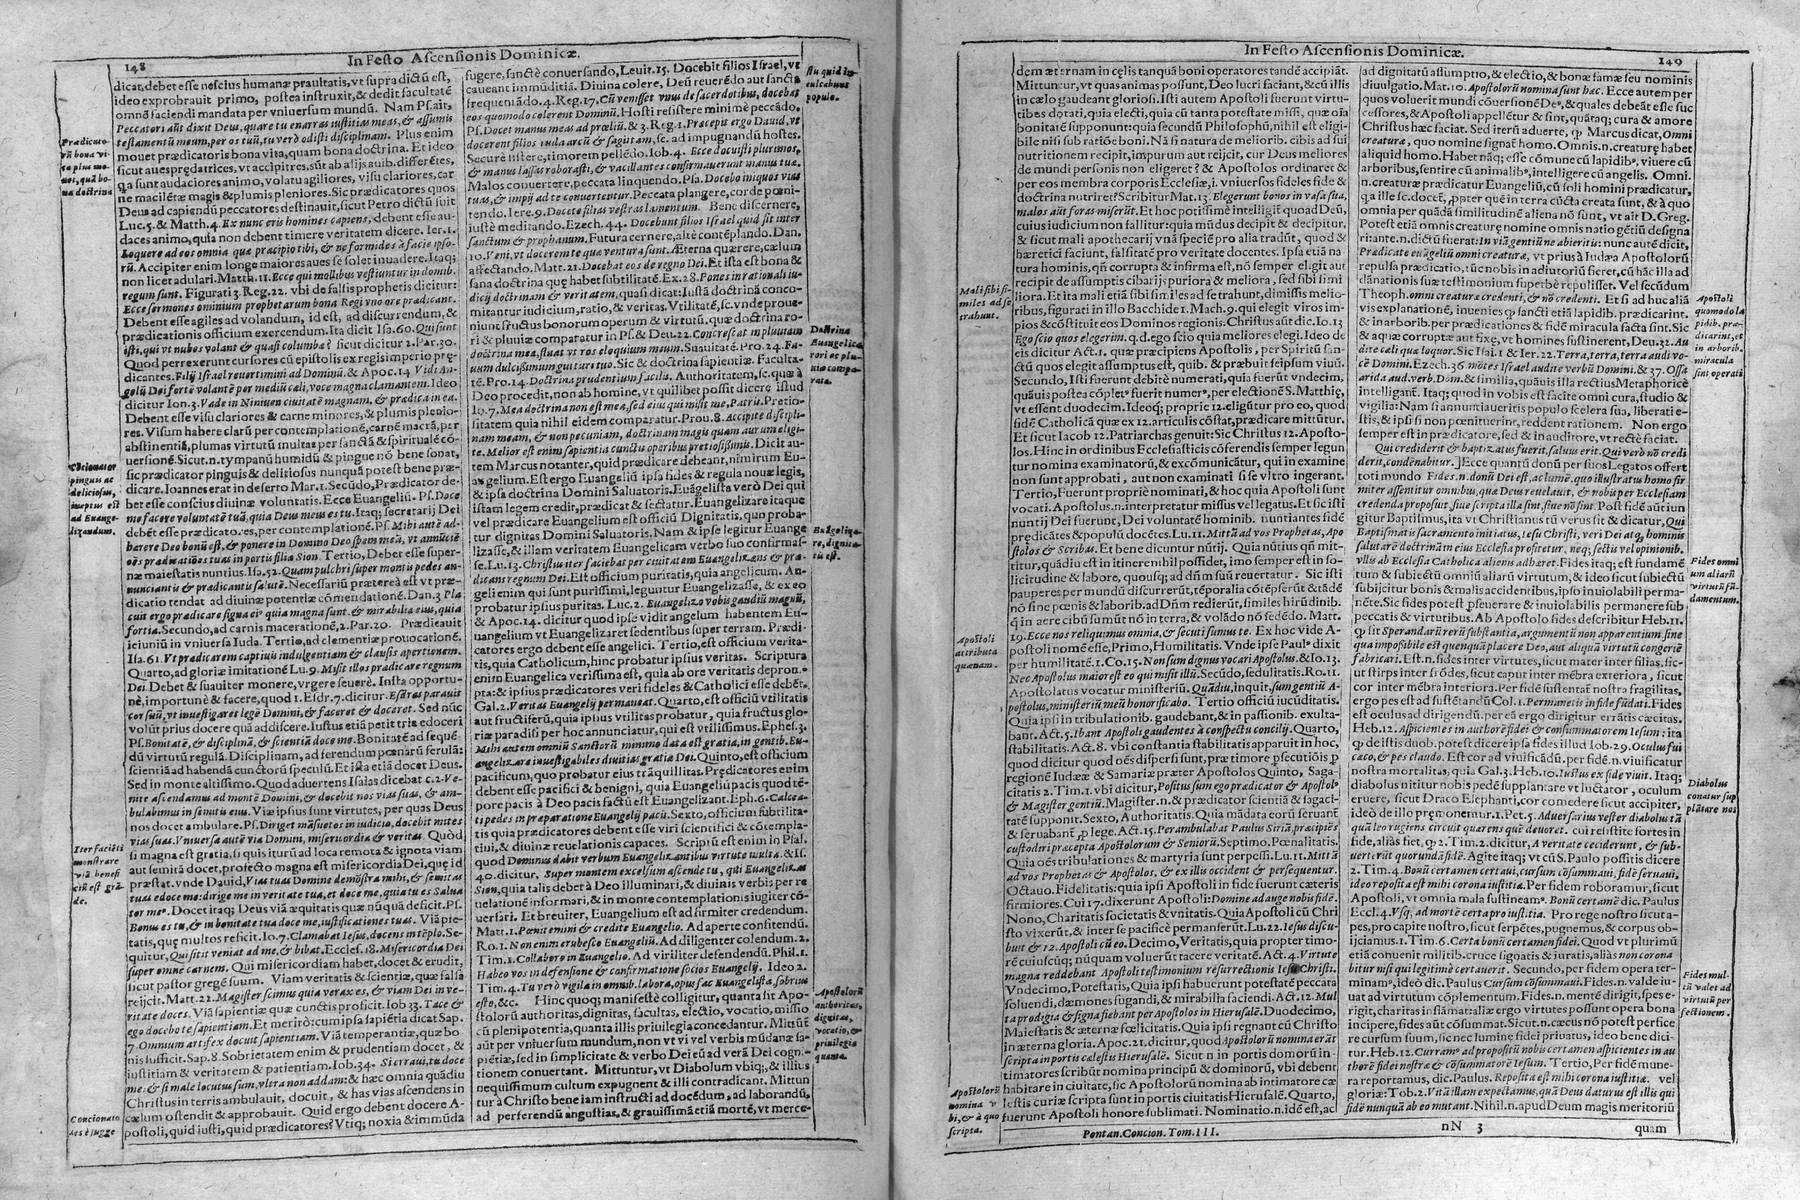 148
In Festo Ascensionis Dominicæ.
dicat, debet esse nescius humanæ prauitatis, vt supra dictũ est,
ideo exprobrauit primo, postea instruxit, & dedit facultatẽ
omnõ faciendi mandata per vniuersum mundũ. Nam Ps. ait,
Peccatori aũt dixit Deus, quare tu enarras iustitias meas, & assumis
testamentũ meum, per os tuũ, tu verò odisti disciplinam. Plus enim
mouet prædicatoris bona vita, quam bona doctrina. Et ideo
Deus ad capiendũ peccatores destinauit, sicut Petro dictũ fuit
Luc. 5. & Matth. 4. Ex nunc eris homines capiens, debent esse au-
daces animo, quia non debent timere veritatem dicere. Ier. 1.
Loquere ad eos omnia quæ præcipio tibi, & ne formides à facie ipso-
non licet adulari. Matth. 11. Ecce qui mollibus vestiuntur in domib.
regum sunt. Figurati 3. Reg. 22. vbi de falsis prophetis dicitur:
Ecce sermones omnium prophetarum bona Regi vno ore prædicant.
Debent esse agiles ad volandum, id est, ad discurrendum, &
prædicationis officium exercendum. Ita dicit Isa. 60. Qui sunt
isti, qui vt nubes volant & quasi columbæ? sicut dicitur 2. Par. 30.
Quod perrexerunt cursores cũ epistolis ex regis imperio præ-
dicantes. Filij Israel reuertimini ad Dominũ, & Apoc. 14. Vidi An-
gelũ Dei fortẽ volantẽ per mediũ cæli, voce magna clamantem. Ideo
dicitur Ion. 3. Vade in Niniuen ciuitatẽ magnam, & prædica in ea.
Debent esse visu clariores & carne minores, & plumis plenio-
res. Visum habere clarũ per contemplationẽ, carnẽ macrã, per
abstinentiã, plumas virtutũ multas per sanctã & spiritualẽ cõ-
uersionẽ. Sicut. n. tympanũ humidũ & pingue nõ bene sonat,
sic prædicator pinguis & delitiosus nunquã potest bene præ-
dicare. Ioannes erat in deserto Mar. 1. Secũdo, Prædicator de-
bet esse conscius diuinæ voluntatis. Ecce Euangeliũ. Ps. Doce
me facere voluntatẽ tuã, quia Deus meus es tu. Itaq; secretarij Dei
debẽt esse prædicatores, per contemplationẽ. Ps. Mihi autẽ ad-
bærere Deo bonũ est, & ponere in Domino Deo spem meã, vt annũciẽ
oẽs prædicatiões tuas in portis filiæ Sion. Tertio, Deber esse super-
næ maiestatis nuntius. Isa. 52. Quam pulchri super montes pedes an-
nunciantis & prædicantis salutẽ. Necessariũ prætereà est vt præ-
dicatio tendat ad diuinæ potentiæ cõmendationẽ. Dan. 3. Pla
cuit ergo prædicare signa eius quia magna sunt, & mirabilia eius, quia
fortia. Secundo, ad carnis macerationẽ, 2. Par. 20. Prædicauit
ieiuniũ in vniuersa Iuda. Tertio, ad clementiæ prouocationẽ.
Isa. 61. Vt prædicarem captiuis indulgentiam & clausis apertionem.
Quarto, ad gloriæ imitationẽ Lu. 9. Misit illos prædicare regnum
Dei. Debet & suauiter monere, vrgere seuerè. Insta opportu-
nè, importunè & facere, quod 1. Esdr. 7. dicitur. Esdras parauit
cor suũ, vt inuestigaret legẽ Domini, & faceret & doceret. Sed nũc
volũt prius docere quã addiscere. Iustus etiã petit tria edoceri
Ps. Bonitatẽ, & disciplinã, & scientiã doce me. Bonitatẽ ad sequẽ-
dũ virtutũ regulã. Disciplinam, ad ferendum pœnarũ ferulã:
scientiã ad habendã cunctorũ speculũ. Et ista etiã docet Deus.
Sed in monte altissimo. Quod aduertens Isaias dicebat c. 2. Ve-
nite ascendamus ad montẽ Domini, & docebit nos vias suas, & am-
bulabimus in semitis eius. Viæ ipsius sunt virtutes, per quas Deus
nos docet ambulare. Ps. Diriget mãsuetos in iudicio, docebit mites
vias suas. Vniuersæ autẽ viæ Domini, misericordia & veritas. Quòd
si magna est gratia, si quis iturũ ad loca remota & ignota viam
aut semitã docet, profecto magna est misericordia Dei, quę id
præstat. vnde Dauid, Vias tuas Domine demõstra mihi, & semitas
tuas edoce me: dirige me in veritate tua, et doce me, quia tu es Salua
tor meus. Docet itaq; Deus viã æquitatis quæ nũquã deficit. Ps.
Bonus es tu, & in bonitate tua doce me, iustificationes tuas. Viã pie-
tatis, quę multos reficit. Io. 7. Clamabat Iesus, docens in tẽplo. Se-
quitur, Qui sitit veniat ad me, & bibat. Eccles. 18. Misericordia Dei
super omne carnem. Qui misericordiam habet, docet & erudit,
sicut pastor gregẽ suum. Viam veritatis & scientiæ, quæ falsa
reijcit. Matt. 22. Magister scimus quia verax es, & viam Dei in ve-
ritate doces. Viã sapientiæ quæ cunctis proficit. Iob 33. Tace &
ego docebo te sapientiam. Et meritò: cum ipsa sapiẽtia dicat Sap.
7. Omnium artifex docuit sapientiam. Viã temperantiæ, quæ bo
nis sufficit. Sap. 8. Sobrietatem enim & prudentiam docet, &
iustitiam & veritatem & patientiam. Iob. 34. Si erraui, tu doce
me: & si male locutus sum, vltra non addam: & hæc omnia quãdiu
Christus in terris ambulauit, docuit, & has vias ascendens in
cælum ostendit & approbauit. Quid ergo debent docere A-
postoli, quid iusti, quid prædicatores? Vtiq; noxia & immũda
Prædicato-
rũ bona vi-
ta plus mo-
uet, quã bo-
na doctrina
Cõcionator
pinguis ac
deliciosus,
ineptus est
ad Euange-
lizandum.
Iter faciẽti
monstrare
viã benefi
ciũ est grã-
de.
Concionato
res è sugge
fugere, sanctè conuersando, Leuit. 15. Docebit filios Israel, vt
caueant immũditiã. Diuina colere, Deũ reuerẽdo aut sancta
frequentãdo. 4. Reg. 17. Cũ venisset vnus de sacerdotibus, docebat
eos quomodo colerent Dominũ. Hosti resistere minimè peccãdo,
Ps. Docet manus meas ad prœliũ. & 3. Reg. 1. Præcepit ergo Dauid, vt
docerent filios iuda arcũ & sagittam, sc. ad impugnandũ hostes.
Securè sistere, timorem pellẽdo. Iob. 4. Ecce docuisti plurimos,
& manus lassas roborasti, & vacillantes confirmauerunt manus tuæ.
Malos conuertere, peccata linquendo. Psa. Docebo iniquos vias
tuas, & impij ad te conuertentur. Peccata plangere, corde pœni-
tendo. Iere. 9. Docete filias vestras lamentum. Bene discernere,
iustè meditando. Ezech. 44. Docebunt filios Israel quid sit inter
sanctum & prophanum. Futura cernere, altè contẽplando. Dan.
10. Veni, vt docerem te quæ ventura sunt. Æterna quærere, cælum
affectando. Matt. 21. Docebat eos de regno Dei. Et ista est bona &
sana doctrina quę habet subtilitatẽ. Ex. 28. Pones in rationali iu-
dicij doctrinam & veritatem, quasi dicat: Iustã doctrinã conco-
mitantur iudicium, ratio, & veritas. Vtilitatẽ, sc. vnde proue-
niunt fructus bonorum operum & virtutũ, quæ doctrina ro-
ri & pluuiæ comparatur in Ps. & Deu. 22. Concrescat in pluuiam
doctrina mea, fluat vt ros eloquium meum. Suauitatẽ. Pro. 24. Fa-
uum dulcissimum gutturi tuo. Sic & doctrina sapientiæ. Faculta-
tẽ. Pro. 14. Doctrina prudentium facilis. Authoritatem, sc. quæ à
Deo procedit, non ab homine, vt quilibet possit dicere istud
Io. 7. Mea doctrina non est mea, sed eius qui misit me, Patris. Pretio-
litatem quia nihil eidem comparatur. Prou. 8. Accipite discipli-
nam meam, & non pecuniam, doctrinam magis quam aurum eligi-
te. Melior est enim sapientia cunctis operibus pretiosissimis. Dicit au-
tem Marcus notanter, quid prædicare debeant, nimirum Eu-
angelium. Est ergo Euangeliũ ipsa fides & regula nouæ legis,
& ipsa doctrina Domini Saluatoris. Euãgelista verò Dei qui
istam legem credit, prædicat & sectatur. Euangelizare itaque
vel prædicare Euangelium est officiũ Dignitatis, quo proba-
tur dignitas Domini Saluatoris. Nam & ipse legitur Euange
lizasse, & illam veritatem Euangelicam verbo suo confirmas-
se. Lu. 13. Christus iter faciebat per ciuitatem Euangelizans & præ-
dicans regnum Dei. Est officium puritatis, quia angelicum. An-
geli enim qui sunt purissimi, leguntur Euangelizasse, & ex eo
probatur ipsius puritas. Luc. 2. Euangelizo vobis gaudiũ magnũ,
& Apoc. 14. dicitur quod ipse vidit angelum habentem Eu-
uangelium vt Euangelizaret sedentibus super terram. Prædi-
catores ergo debent esse angelici. Tertio, est officium verita-
tis, quia Catholicum, hinc probatur ipsius veritas. Scriptura
enim Euangelica verissima est, quia ab ore veritatis depron-
pta: & ipsius prædicatores veri fideles & Catholici esse debẽt.
Gal. 2. Veritas Euangelij permaneat. Quarto, est officiũ vtilitatis
aut fructiferũ, quia ipsius vtilitas probatur, quia fructus glo-
riæ paradisi per hoc annunciatur, qui est vtilissimus. Ephes. 3.
Mihi autem omniũ Sanctorũ minimo data est gratia, in gentib. Eu-
angelizare inuestigabiles diuitias gratiæ Dei. Quinto, est officium
pacificum, quo probatur eius trãquillitas. Prædicatores enim
debent esse pacifici & benigni, quia Euangeliũ pacis quod tẽ-
pore pacis à Deo pacis factũ est Euangelizant. Eph. 6. Calcea-
ti pedes in præparatione Euangelij pacis. Sexto, officium subtilita-
tis quia prædicatores debent esse viri scientifici & cõtempla-
tiui, & diuinæ reuelationis capaces. Scriptũ est enim in Psal.
quod Dominus dabit verbum Euangelizantibus virtute multa. & Is.
40. dicitur. Super montem excelsum ascende tu, qui Euangelizas
Sion, quia talis debet à Deo illuminari, & diuinis verbis per re
uelationẽ informari, & in monte contemplationis iugiter cõ-
uersari. Et breuiter, Euangelium est ad firmiter credendum.
Matt. 1. Pœnitemini & credite Euangelio. Ad aperte confitendũ.
Ro. 1. Non enim erubesco Euangeliũ. Ad diligenter colendum. 2.
Tim. 1. Collabora in Euangelio. Ad viriliter defendendũ. Phil. 1.
Habeo vos in defensione & confirmatione socios Euangelij. Ideo 2.
Tim. 4. Tu verò vigila in omnib. labora, opus fac Euangelistæ sobrius
esto, &c. Hinc quoq; manifestè colligitur, quanta sit Apo-
stolorũ authoritas, dignitas, facultas, electio, vocatio, missio
cũ plenipotentia, quanta illis priuilegia concedantur. Mittũt
aũt per vniuersum mundum, non vt vi vel verbis mũdanæ sa-
piẽtiæ, sed in simplicitate & verbo Dei eũ ad verã Dei cogni-
tionem conuertant. Mittuntur, vt Diabolum vbiq;, & illius
nequissimum cultum expugnent & illi contradicant. Mittun
tur à Christo bene iam instructi ad docẽdum, ad laborandũ,
ad perferendũ angustias, & grauissimã etiã mortẽ, vt merce-
stu quid in-
culcabunt
populo.
Doctrina
Euangelica
rori ac plu-
uiæ compa-
rata.
Euãgeliza-
re, dignita-
tis est.
Apostolorũ
authoritas,
dignitas,
vocatio, &
priuilegia
quanta.
In Festo Ascensionis Dominicæ.
149
dem æternam in cęlis tanquã boni operatores tandẽ accipiãt.
Mittuntur, vt quas animas possunt, Deo lucri faciant, & cũ illis
in cælo gaudeant gloriosi. Isti autem Apostoli fuerunt virtu-
tibus dotati, quia electi, quia cũ tanta potestate missi, quæ oĩa
bonitatẽ supponunt: quia secundũ Philosophũ, nihil est eligi-
bile nisi sub ratiõe boni. Nã si natura de meliorib. cibis ad sui
nutritionem recipit, impurum aut reijcit, cur Deus meliores
de mundi personis non eligeret? & Apostolos ordinaret &
per eos membra corporis Ecclesiæ, i. vniuersos fideles fide &
doctrina nutriret? Scribitur Mat. 13. Elegerunt bonos in vasa sua,
malos aũt foras miserũt. Et hoc potissimè intelligit quoad Deũ,
cuius iudicium non fallitur: quia mũdus decipit & decipitur,
& sicut mali apothecarij vnã speciẽ pro alia tradũt, quod &
hæretici faciunt, falsitatẽ pro veritate docentes. Ipsa etiã na
tura hominis, qñ corrupta & infirma est, nõ semper eligit aut
recipit de assumptis cibarijs puriora & meliora, sed sibi simi
liora. Et ita mali etiã sibi similes ad se trahunt, dimissis melio-
ribus, figurati in illo Bacchide 1. Mach. 9. qui elegit viros im-
pios & cõstituit eos Dominos regionis. Christus aũt dic. Io. 13
Ego scio quos elegerim. q.d. ego scio quia meliores elegi. Ideo de
eis dicitur Act. 1. quæ præcipiens Apostolis, per Spiritũ san-
ctũ quos elegit assumptus est, quib. & præbuit seipsum viuũ.
Secundo, Isti fuerunt debitè numerati, quia fuerũt vndecim,
vt essent duodecim. Ideoq; propriè 12. eligũtur pro eo, quod
fidẽ Catholicã quæ ex 12. articulis cõstat, prædicare mittũtur.
Et sicut Iacob 12. Patriarchas genuit: Sic Christus 12. Aposto-
los. Hinc in ordinibus Ecclesiasticis cõferendis semper legun
tur nomina examinatorũ, & excõmunicãtur, qui in examine
non sunt approbati, aut non examinati si se vltro ingerant.
Tertio, Fuerunt propriè nominati, & hoc quia Apostoli sunt
vocati. Apostolus. n. interpretatur missus vel legatus. Et sic isti
nuntij Dei fuerunt, Dei voluntatẽ hominib. nuntiantes fidẽ
prędicãtes & populũ docẽtes. Lu. 11. Mittã ad vos Prophetas, Apo
stolos & Scribas. Et bene dicuntur nũtij. Quia nũtius qñ mit-
titur, quãdiu est in itinere nihil possidet, imo semper est in so-
licitudine & labore, quousq; ad dñm suũ reuertatur. Sic isti
pauperes per mundũ discurrerũt, tẽporalia cõtẽpserũt & tãdẽ
nõ sine pœnis & laborib. ad Dñm redierũt, similes hirũdinib.
19. Ecce nos reliquimus omnia, & secuti sumus te. Ex hoc vide A-
postoli nomẽ esse, Primo, Humilitatis. Vnde ipse Paulus dixit
per humilitatẽ. 1. Co. 15. Non sum dignus vocari Apostolus. & Io. 13.
Nec Apostolus maior est eo qui misit illũ. Secũdo, sedulitatis. Ro. 11.
Apostolatus vocatur ministeriũ. Quãdiu, inquit, sum gentiũ A-
postolus, ministeriũ meũ honorificabo. Tertio officiũ iucũditatis.
Quia ipsi in tribulationib. gaudebant, & in passionib. exulta-
bant. Act. 5. Ibant Apostoli gaudentes à conspectu concilij. Quarto,
stabilitatis. Act. 8. vbi constantia stabilitatis apparuit in hoc,
quod dicitur quod oẽs dispersi sunt, præ timore psecutiõis p
regionẽ Iudææ & Samariæ præter Apostolos Quinto, Saga-
citatis 2. Tim. 1. vbi dicitur, Positus sum ego prædicator & Apostolus
& Magister gentiũ. Magister. n. & prædicator scientiã & sagaci-
tatẽ supponit. Sexto, Authoritatis. Quia mãdata eorũ seruant
& seruabant, p lege. Act. 15. Perambulabat Paulus Siriã præcipiẽs
custodiri præcepta Apostolorum & Seniorũ. Septimo. Pœnalitatis.
Quia oẽs tribulationes & martyria sunt perpessi. Lu. 11. Mittã
ad vos Prophetas & Apostolos, & ex illis occident & persequentur.
Octauo. Fidelitatis: quia ipsi Apostoli in fide fuerunt cæteris
firmiores. Cui 17. dixerunt Apostoli: Domine adauge nobis fidẽ.
Nono, Charitatis societatis & vnitatis. Quia Apostoli cũ Chri
sto vixerũt, & inter se pacificè permanserũt. Lu. 22. Iesus discu-
buit & 12. Apostoli cũ eo. Decimo, Veritatis, quia propter timo-
rẽ cuiuscũq; nũquam voluerũt tacere veritatẽ. Act. 4. Virtute
magna reddebant Apostoli testimonium resurrectionis Iesu Christi.
Vndecimo, Potestatis, Quia ipsi habuerunt potestatẽ peccata
soluendi, dæmones fugandi, & mirabilia faciendi. Act. 12. Mul
ta prodigia & signa fiebant per Apostolos in Hierusalẽ. Duodecimo,
Maiestatis & æternæ fœlicitatis. Quia ipsi regnant cũ Christo
in æterna gloria. Apoc. 21. dicitur, quod Apostolorũ nomina erãt
scripta in portis cælestis Hierusalẽ. Sicut n. in portis domorũ in-
timatores scribũt nomina principũ & dominorũ, vbi debent
habitare in ciuitate, sic Apostolorũ nomina ab intimatore cæ
lestis curiæ scripta sunt in portis ciuitatis Hierusalẽ. Quarto,
fuerunt Apostoli honore sublimati. Nominatio. n. idẽ est, ac
Mali sibi si-
miles ad se
trahunt.
Apostoli
attributa
quænam.
Apostolorũ
nomina v-
bi, & à quo
scripta.
ad dignitatũ assumptio, & electio, & bonæ famæ seu nominis
diuulgatio. Mat. 10. Apostolorũ nomina sunt hæc. Ecce autem per
quos voluerit mundi cõuersionẽ Deus, & quales debeãt esse suc
cessores, & Apostoli appellẽtur & sint, quãtaq; cura & amore
Christus hæc faciat. Sed iterũ aduerte, qp Marcus dicat, Omni
creaturæ, quo nomine signat homo. Omnis. n. creaturę habet
aliquid homo. Habet nãq; esse cõmune cũ lapidibus, viuere cũ
arboribus, sentire cũ animalibus, intelligere cũ angelis. Omni.
n. creaturæ prædicatur Euangeliũ, cũ soli homini prædicatur,
omnia per quãdã similitudinẽ aliena nõ sunt, vt ait D. Greg.
Potest etiã omnis creaturę nomine omnis natio gẽtiũ designa
ri: ante. n. dictũ fuerat: In viã gentiũ ne abieritis: nunc autẽ dicit,
Prædicate euãgeliũ omni creaturæ, vt prius à Iudæa Apostolorũ
repulsa prædicatio, tũc nobis in adiutoriũ fieret, cũ hãc illa ad
dãnationis suæ testimonium superbè repulisset. Vel secũdum
Theoph. omni creaturæ credenti, & nõ credenti. Et si ad huc aliã
vis explanationẽ, inuenies qp sancti etiã lapidib. prædicarint.
& in arborib. per prædicationes & fidẽ miracula facta sint. Sic
& aquæ corruptæ aut fixę, vt homines sustinerent, Deu. 32. Au
dite cæli quæ loquor. Sic Isai. 1. & Ier. 22. Terra, terra, terra audi vo-
cẽ Domini. Ezech. 36 mõtes Israel audite verbũ Domini. & 37. Ossa
arida aud. verb. Dom. & similia, quãuis illa rectius Metaphoricè
intelligant. Itaq; quod in vobis est facite omni cura, studio &
vigilia: Nam si annuntiaueritis populo scelera sua, liberati e-
stis, & ipsi si non pœnituerint, reddent rationem. Non ergo
semper est in prædicatore, sed & in auditore, vt rectè faciat.
Qui crediderit & baptizatus fuerit, saluus erit. Qui verò nõ credi
derit, condẽnabitur. ] Ecce quantũ donũ per suos Legatos offert
toti mundo Fides. n. donũ Dei est, ac lumẽ, quo illustratus homo fir
miter assentitur omnibus, quæ Deus reuelauit, & nobis per Ecclesiam
credenda proposuit, siue scripta illa sint, siue nõ sint. Post fidẽ aũt iun
gitur Baptismus, ita vt Christianus tũ verus sit & dicatur, Qui
Baptismatis sacramento initiatus, Iesu Christi, veri Dei atq; hominis
salutarẽ doctrinam in eius Ecclesia profitetur, neq; sectis vel opinionib.
vllis ab Ecclesia Catholica alienis adhæret. Fides itaq; est fundamẽ
tum & subiectũ omniũ aliarũ virtutum, & ideo sicut subiectũ
subijcitur bonis & malis accidentibus, ipso inuiolabili perma-
nẽte. Sic fides potest pseuerare & inuiolabilis permanere sub
peccatis & virtutibus. Ab Apostolo fides describitur Heb. 11.
qp sit Sperandarũ rerũ substantia, argumentũ non apparentium, sine
qua impossibile est quenquã placere Deo, aut aliquã virtutũ congeriẽ
fabricari. Est. n. fides inter virtutes, sicut mater inter filias, sic-
ut stirps inter flores, sicut caput inter mẽbra exteriora, sicut
cor inter mẽbra interiora. Per fidẽ sustentat nostra fragilitas,
ergo pes est ad sustẽtandũ Col. 1. Permanetis in fide fũdati. Fides
est oculus ad dirigendũ. per eã ergo dirigitur errãtis cæcitas.
Heb. 12. Aspicientes in authorẽ fidei & consummatorem Iesum: ita
qp de istis duob. potest dicere ipsa fides illud Iob. 29. Oculus fui
cæco, & pes claudo. Est cor ad viuificãdũ. per fidẽ. n. viuificatur
nostra mortalitas, quia Gal. 3. Heb. 10. Iustus ex fide viuit. Itaq;
diabolus nititur nobis pedẽ supplantare vt luctator, oculum
eruere, sicut Draco Elephanti, cor comedere sicut accipiter,
ideo de illo pręmonemur. 1. Pet. 5. Aduersarius vester diabolus tã
quã leo rugiens circuit quærens quẽ deuoret. cui resistite fortes in
fide, aliàs fiet, qp 2. Tim. 2. dicitur, A veritate ceciderunt, & sub-
uerterũt quorundã fidẽ. Agite itaq; vt cũ S. Paulo possitis dicere
2. Tim. 4. Bonũ certamen certaui, cursum cõsummaui, fidẽ seruaui,
ideo reposita est mihi corona iustitiæ. Per fidem roboramur, sicut
Apostoli, vt omnia mala sustineamus. Bonũ certamẽ dic. Paulus
Eccl. 4. Vsq; ad mortẽ certa pro iustitia. Pro rege nostro sicut a-
pes, pro capite nostro, sicut serpẽtes, pugnemus, & corpus ob-
ijciamus. 1. Tim. 6. Certa bonũ certamen fidei. Quod vt plurimũ
etiã conuenit militib. cruce signatis & iuratis, aliàs non corona
bitur nisi qui legitimè certauerit. Secundo, per fidem opera ter-
minamus, ideo dic. Paulus Cursum cõsummaui. Fides. n. valde iu-
uat ad virtutum cõplementum. Fides. n. mentẽ dirigit, spes e-
rigit, charitas inflãmat: aliæ ergo virtutes possunt opera bona
incipere, fides aũt cõsummat. Sicut. n. cæcus nõ potest perfice
re cursum suum, sic nec lumine fidei priuatus, ideo bene dici-
tur. Heb. 12. Curramus ad propositũ nobis certamen aspicientes in au
thorẽ fidei nostræ & cõsummatorẽ Iesum. Tertio, Per fidẽ mune-
ra reportamus, dic. Paulus. Reposita est mihi corona iustitiæ. vel
gloriæ: Tob. 2. Vitã illam expectamus, quã Deus daturus est illis qui
fidẽ nunquã ab eo mutant. Nihil. n. apud Deum magis meritoriũ
Apostoli
quomodo la
pidib. præ-
dicarint, et
in arborib.
miracula
sint operati
Fides omni
um aliarũ
virtutũ fũ-
damentum.
Diabolus
conatur sup
plãtare nos
Fides mul-
tũ valet ad
virtutũ per
fectionem.
Pontan. Concion. Tom. III.
nN 3
quam